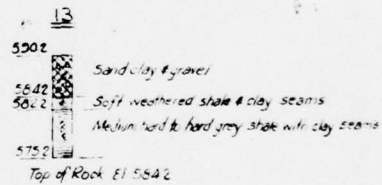 13
590.2
Sand clay & gravel
584.2
582.2
Soft weathered shale & clay seams
Medium hard to hard grey shale with clay seams
575.2
Top of Rock El 584.2